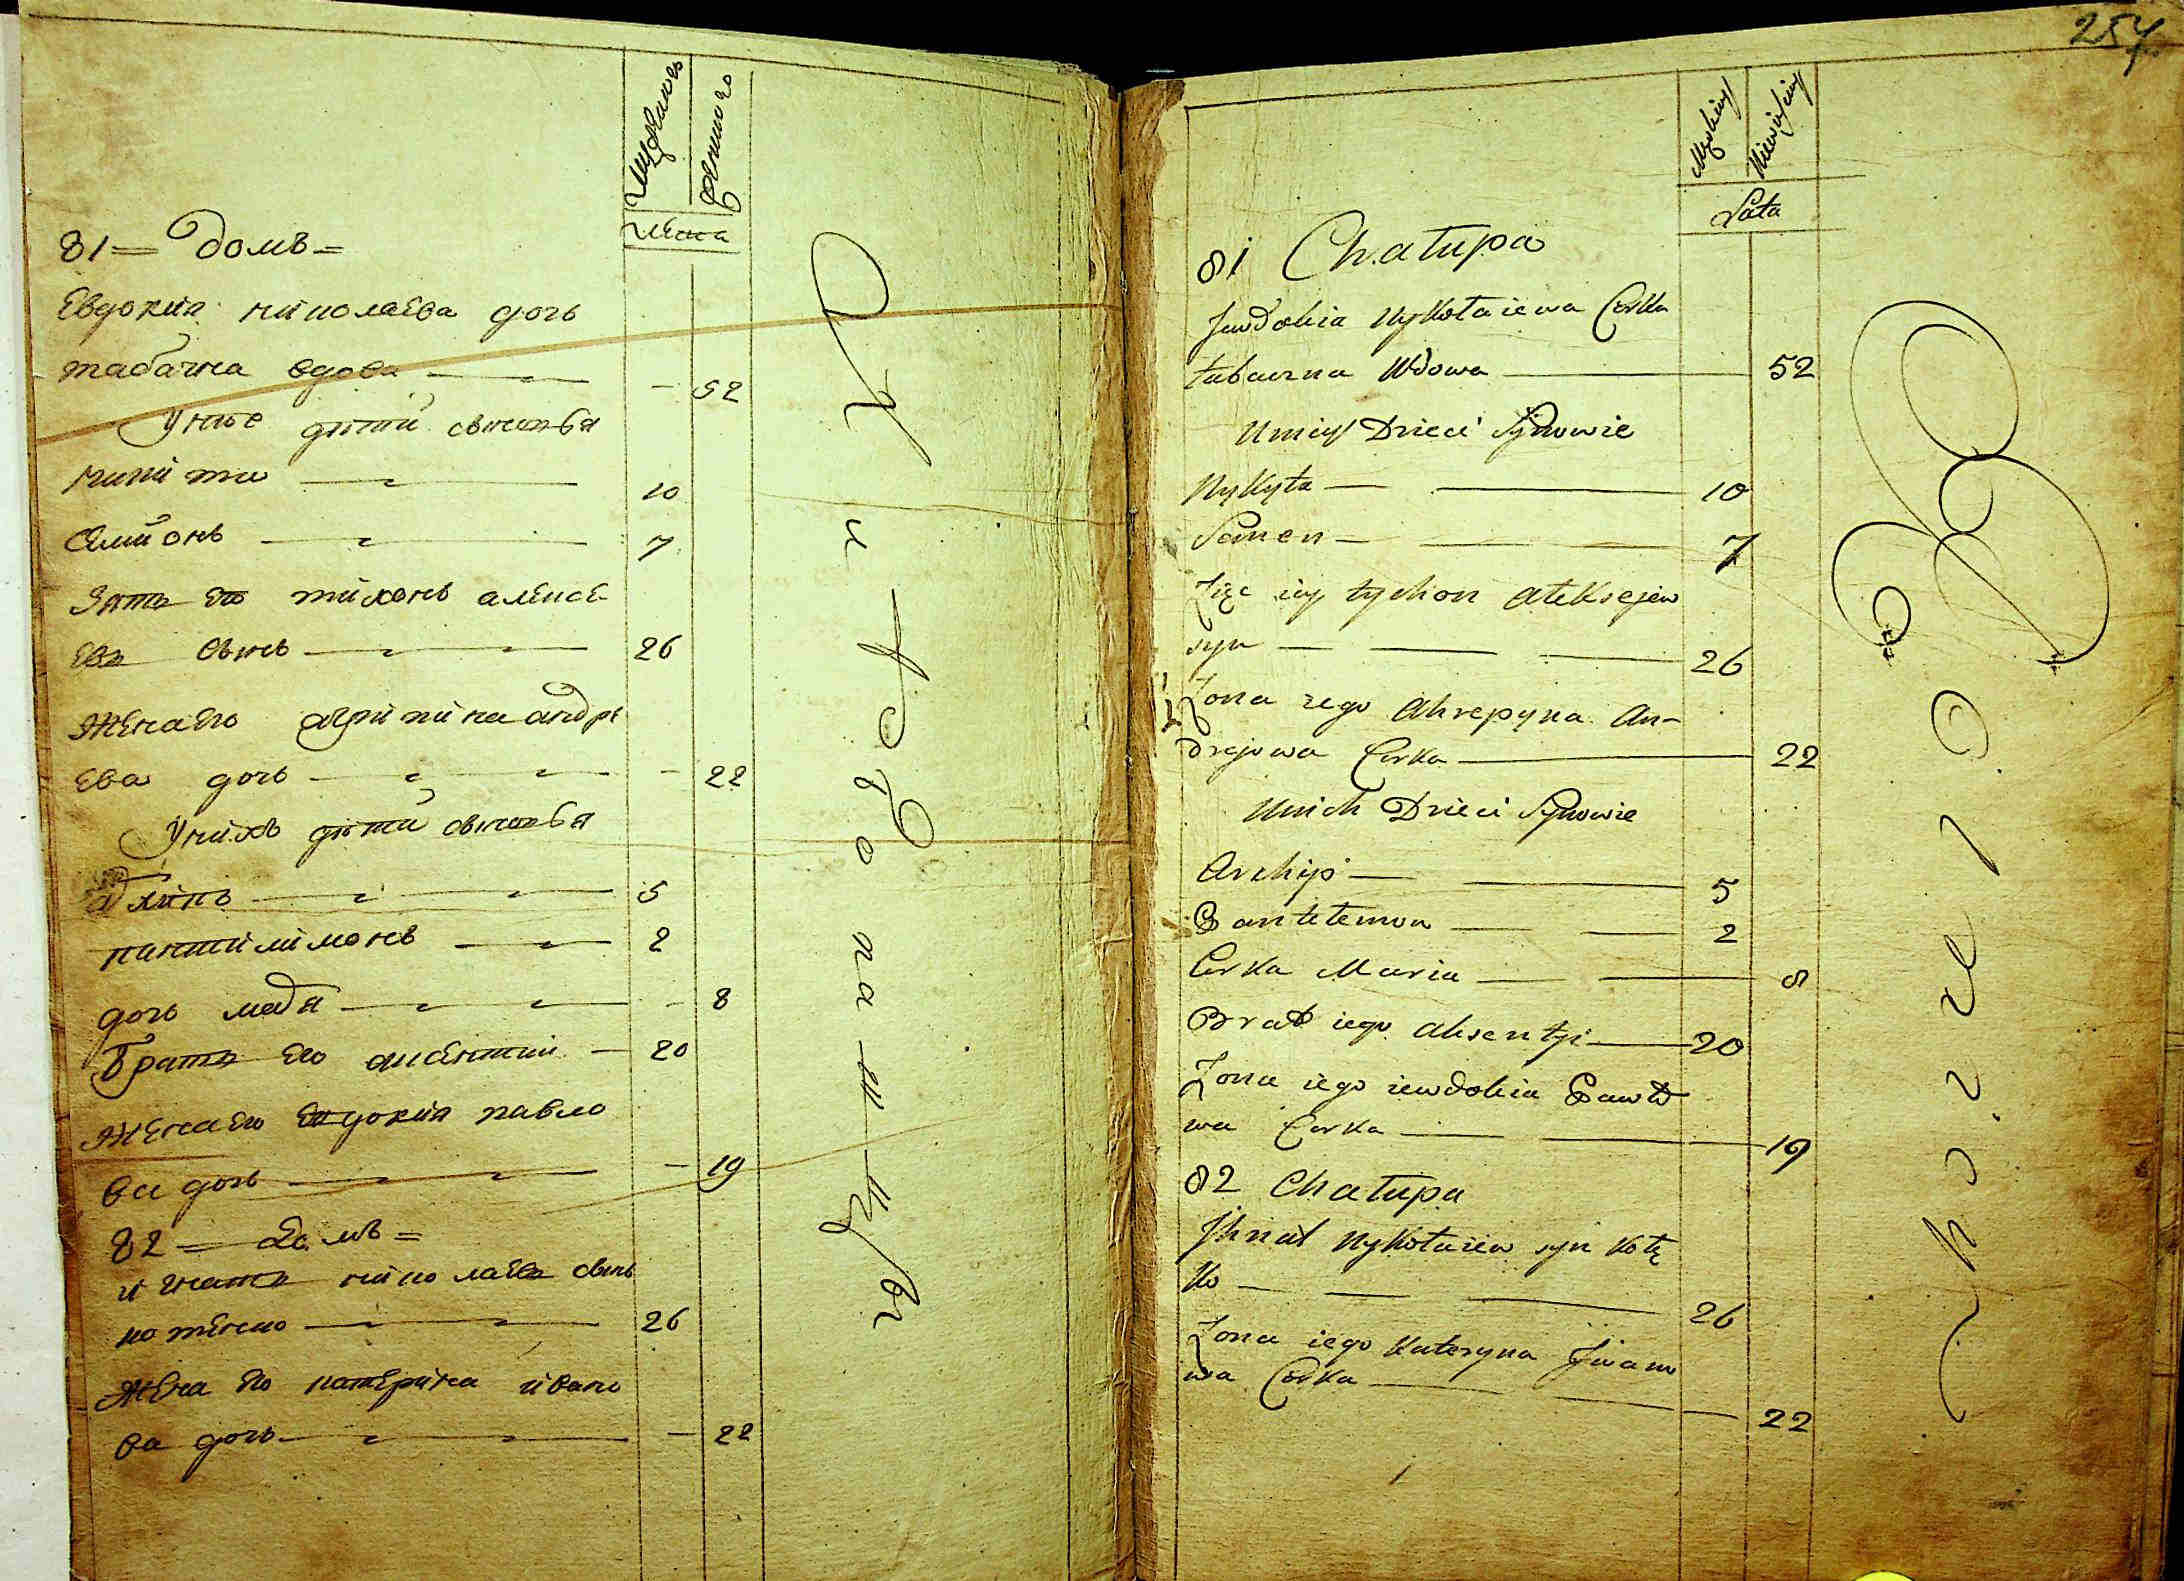 81 = домъ =
Евдокия николаева дочь
табачна вдова — 52
У нее дѣти сыновья
никита — 10
Семионъ — 7
Зять Ее тихонъ алексе-
евъ сынъ — 26
Жена Его агрипина андре
ева дочь — 22
У нихъ дѣти сыновья
архипъ — 5
пантилимонъ — 2
дочь — 8
Братъ Его аксентий — 20
Жена Его Евдокия павло
ва дочь — 19
82 = домъ =
игнатъ николаевъ сынъ
котенко — 26
Жена Его катерина ивано
ва дочь — 22
257
Męskiey
Niewieściey
Lata
81 Chałupa
Jewdokia Nykołaiewa Corka
tabaczna Wdowa — 52
U niey Dzieci Synowie
Nykyta — 10
Semen — 7
Zięć iey tychon Ałeksejew
syn — 26
Zona iego Ahrepyna An-
drejowa Corka — 22
U nich Dzieci Synowie
Archip — 5
Pantełemon — 2
Corka Maria — 8
Brat iego Aksentji — 20
Zona iego iewdokia Pawło
wa Corka — 19
82 Chałupa
Jhnat Nykołaiew syn Kotę
ko — 26
Zona iego Kateryna Jwano
wa Corka — 22